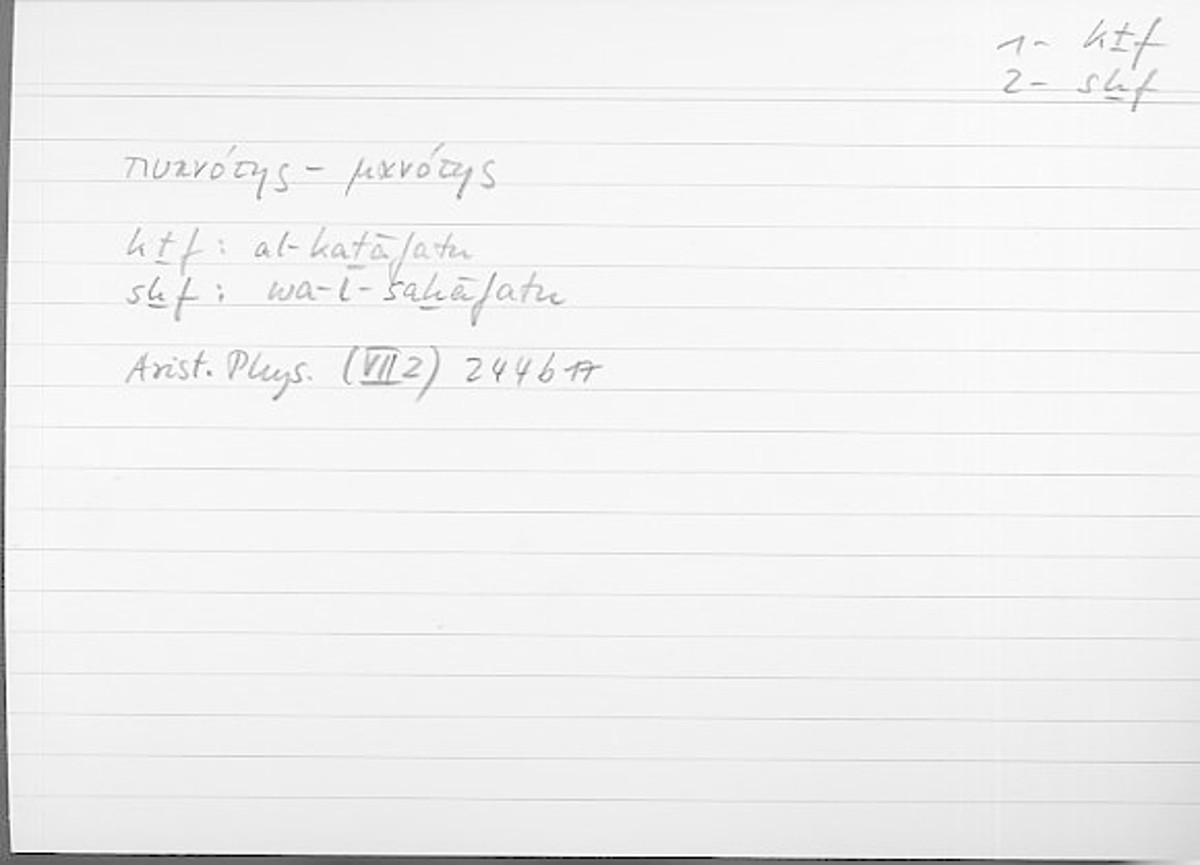 1- kṯf
2- sḫf
πυκνότης - μανότης
kṯf : al-kaṯāfatu
sḫf : wa-l-saḫāfatu
Arist. Phys. (VII 2) 244b17